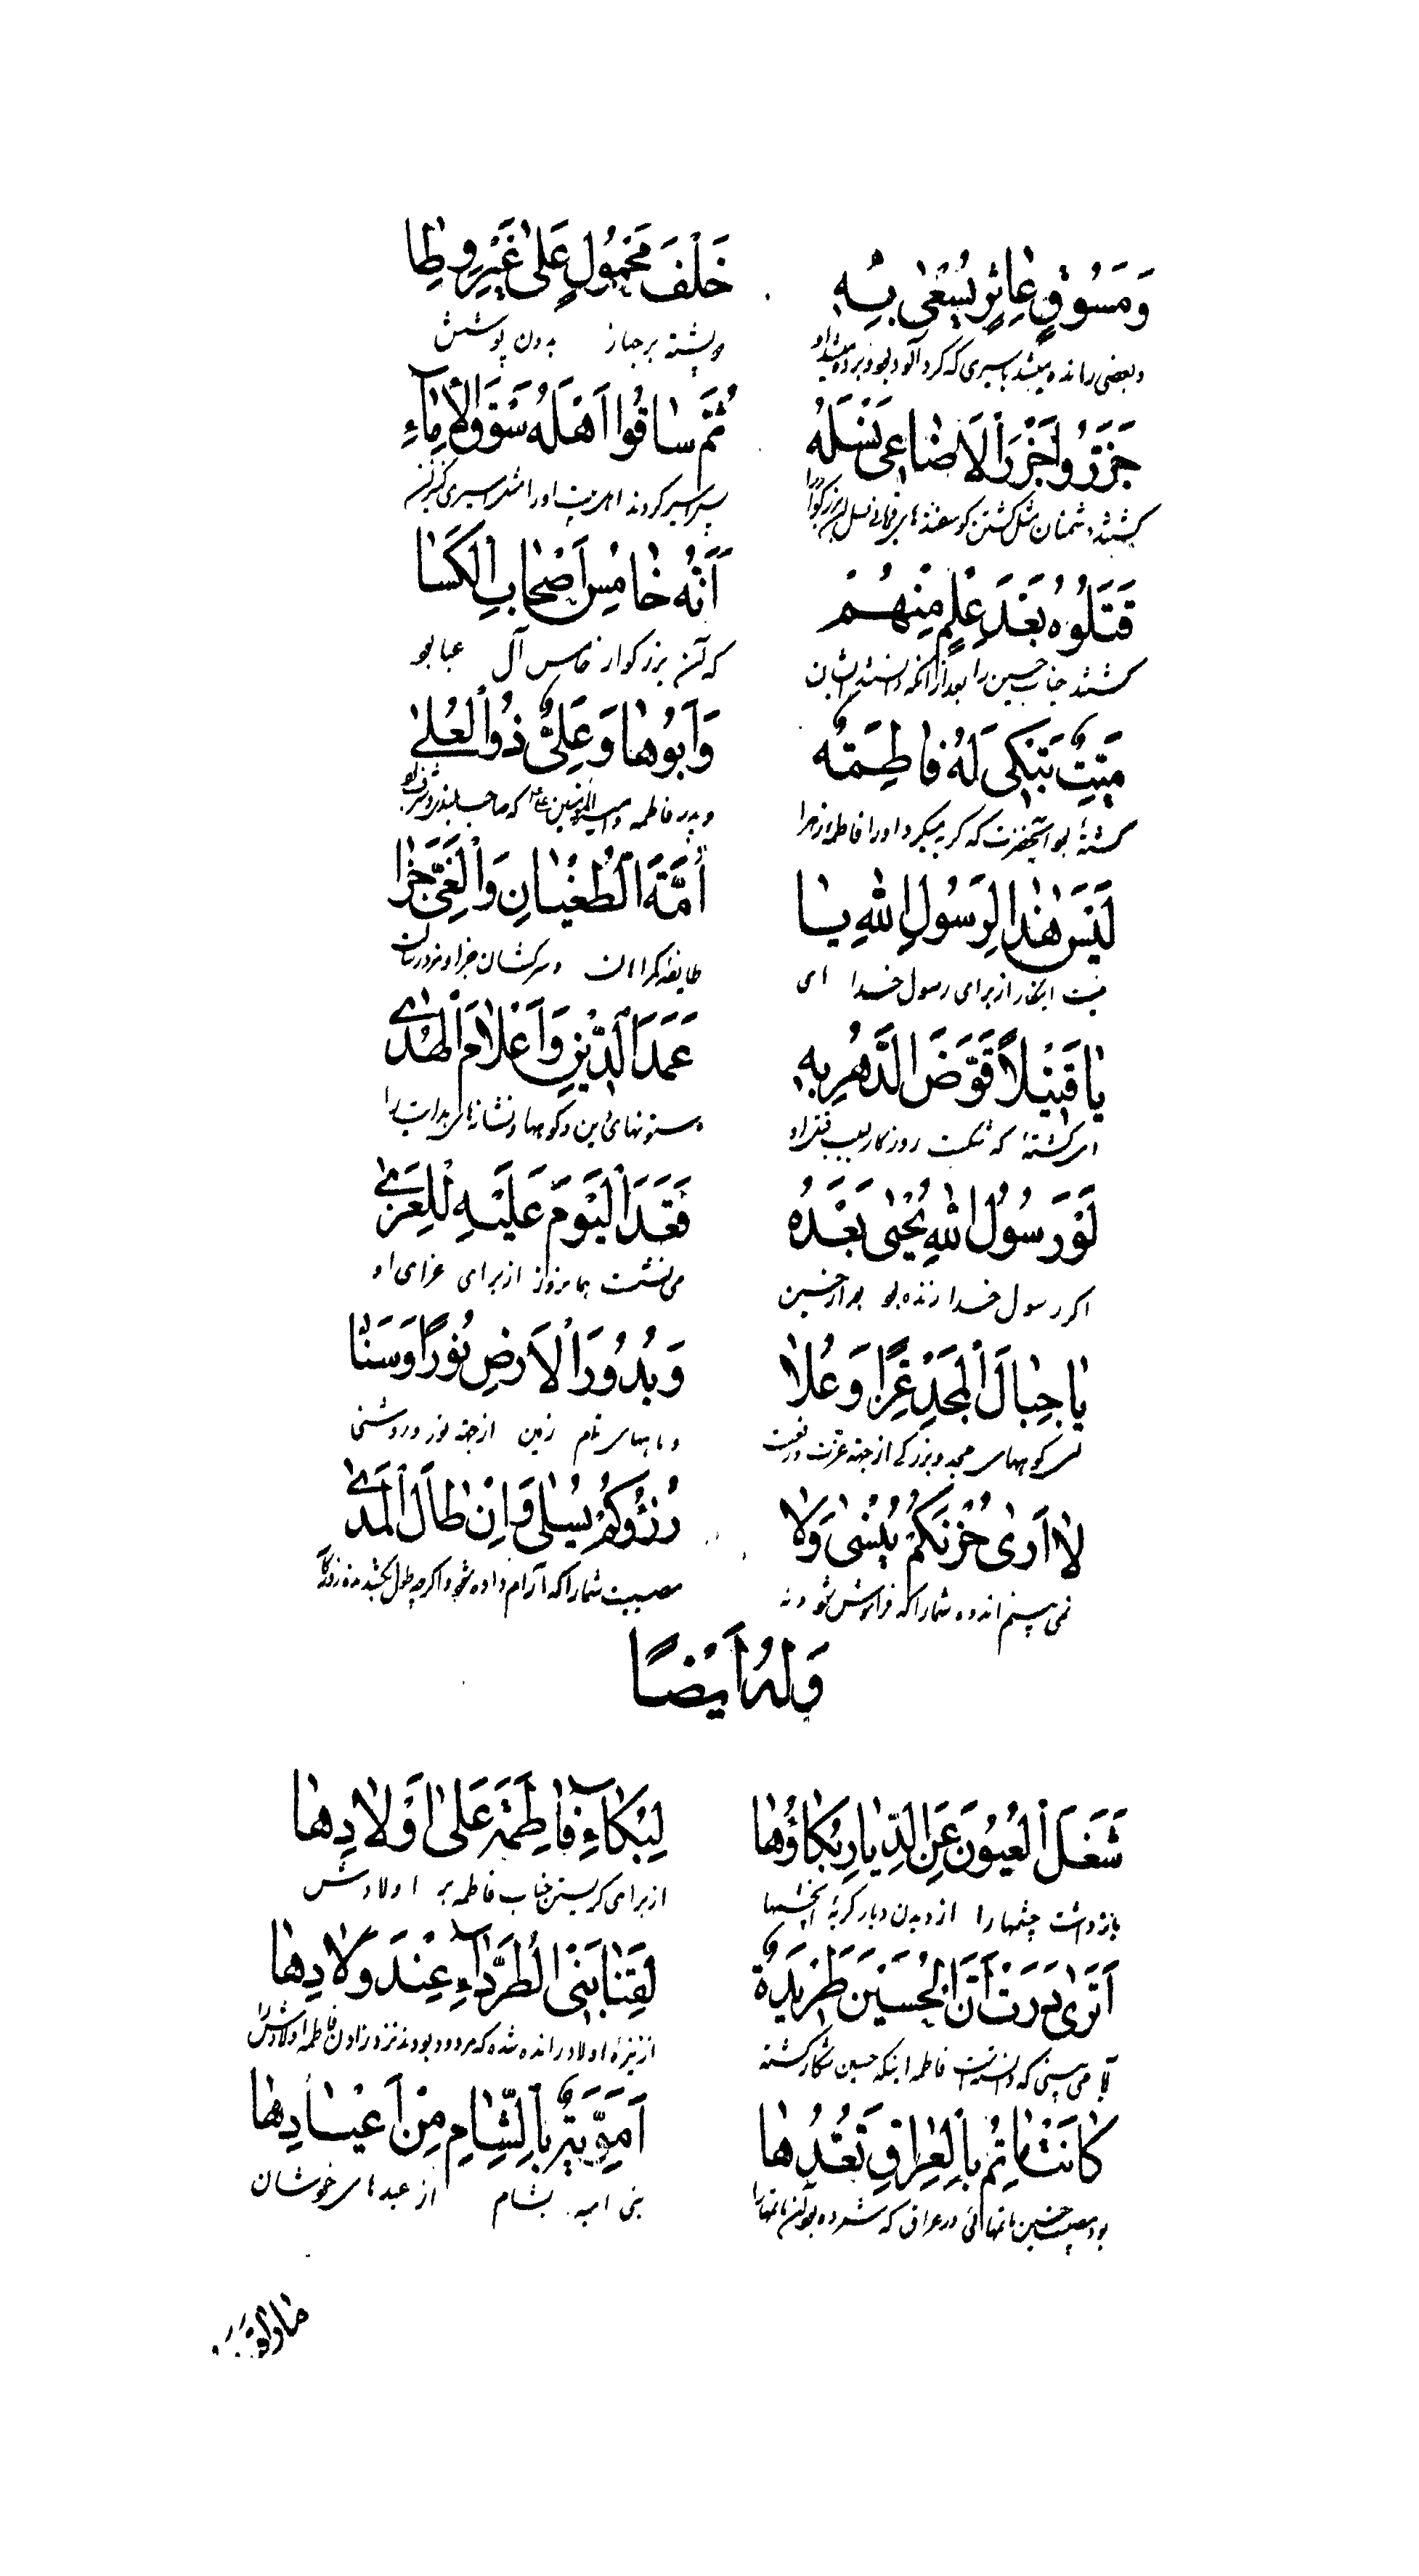 وَمَسُوقٍ عاثِرٍ يُسْعىٰ بِهِ خَلْفَ مَحْمُولٍ عَلىٰ غَيْرِ وِطا
وبعضی رانده میشد باسیری که گرد آلود بود و برده میشد او بر پشته برجهاز بدون پوشش
جَزَرُوا جَزْرَ الْاَضاحِی نَسْلَهُ ثُمَّ ساقُوا اَهْلَهُ سَوْقَ الْاِمآءِ
کشتند دشمنان مثل کشتن کوسفندهای قربانی نسل آن بزرکوار را پس اسیر کردند اهل بیت او را مثل اسیری کنیزان
قَتَلُوهُ بَعْدَ عِلْمٍ مِنْهُمْ اَنَّهُ خامِسُ اَصْحابِ الْكَسا
کشتند جناب حسین را بعد از آنکه دانستند ایشان که آن بزرکوار خامس آل عبا بود
مَیِّتٌ تَبْكی لَهُ فاطِمَةُ وَاَبُوها وَعَلِیٌّ ذُو الْعُلیٰ
کشتهٔ بود آنحضرت که کریه میکرد او را فاطمه زهرا و پدر فاطمه و امیرالمؤمنین که صاحب بلندی و شرف بود
لَیْسَ هٰذا لِرَسُولِ اللهِ یا اُمَّةَ الطُّغْیانِ وَالْغَیِّ جَزا
نیست اینکار از برای رسول خدا ای طایفه کمراهان و سرکشان جزا و مزد رسالت
یا قَتیلاً قَوَّضَ الدَّهْرُ بِهِ عَمَدَ الدّینِ وَاَعْلامَ الْهُدیٰ
ای کشتهٔ که شکست روزکار بسبب قتل او ستونهای دین و کوهها و نشانهای هدایت را
لَوْ رَسُولُ اللهِ یُحْییٰ بَعْدَهُ قَعَدَ الْیَوْمَ عَلَیْهِ لِلْعَزیٰ
اکر رسول خدا زنده بود بعد از حسین می نشست امروز از برای عزای او
یا جِبالَ الْمَجْدِ عِزًّا وَعُلاٰ وَبُدُورَ الْاَرضِ نُورًا وَسَنٰا
ای کوههای مجد و بزرکی از جهة عزت و رفعت و ماههای تمام زمین از جهة نور و روشنی
لاٰ اَریٰ حُزْنَكُمْ یُنْسیٰ وَلاٰ رُزْؤُكُمْ یُسْلیٰ وَاِنْ طالَ الْمَدیٰ
نمی بینم اندوه شما را که فراموش شود و نه مصیبت شما را که آرام داده شود اکرچه طول بکشد مدة روزکار
وَلَهُ اَیْضًا
شَغَلَ الْعُیُونَ عَنِ الدِّیارِ بُكاؤُها لِبُكآءِ فاطِمَةَ عَلیٰ اَوْلادِها
بازداشت چشمها را از دیدن دیار کریهٔ آنچشمها از برای کریستن جناب فاطمه بر اولادش
اَتَریٰ دَرَتْ اَنَّ الْحُسَیْنَ طَریدَةٌ لِقَنا بَنِی الطُّرَّدآءِ عِنْدَ وَلادِها
آیا می بینی که دانست فاطمه اینکه حسین شکار کشته از نیزهٔ اولاد رانده شده که مردود بودند نزد زادن فاطمه اولادش را
كانَتْ مَاٰتِمُ بِالْعِراقِ تَعُدُّها اَمَوِیَّةٌ بِالشّامِ مِنْ اَعْیادِها
بود مصیبت حسین ماتمهائی در عراق که شمرده بود آن ماتمها را بنی امیه بشام از عیدهای خودشان